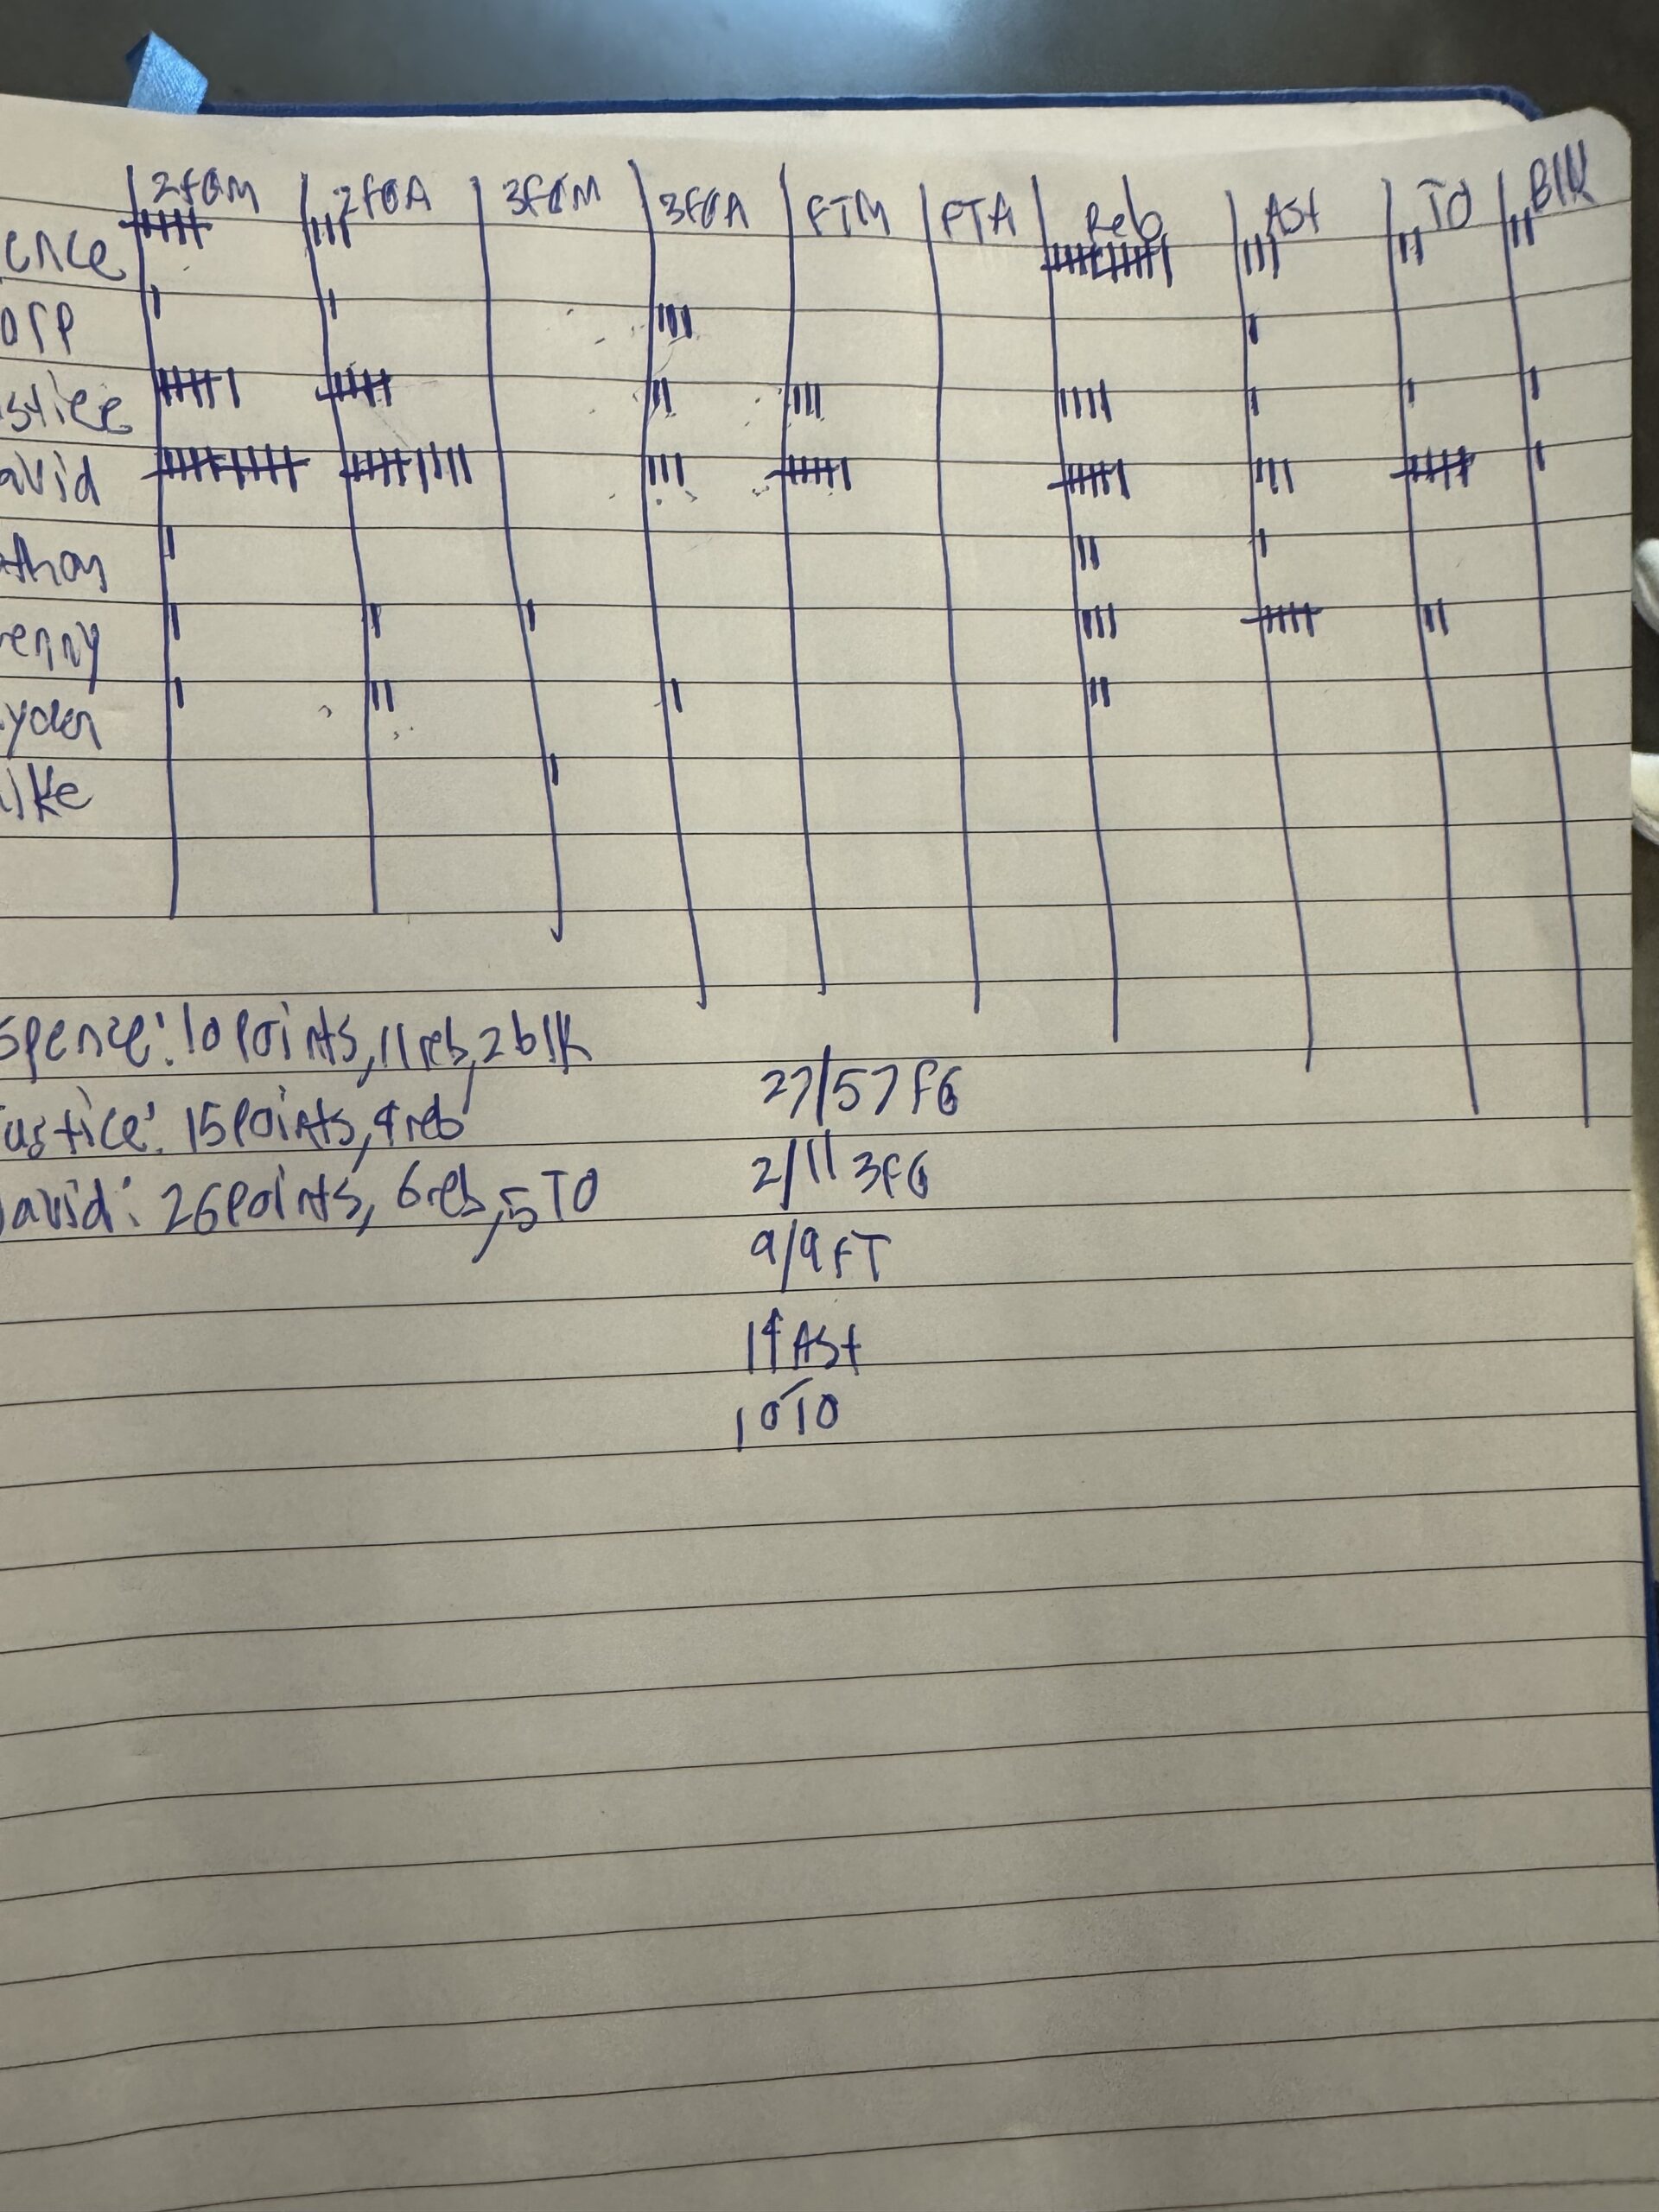 2FGM 2FGA 3FGM 3FGA FTM FTA Reb Ast TO Blk
ence
orp
stice
avid
than
enny
yden
ike
Spence: 10 points, 11 reb, 2 blk
ustice: 15 points, 4 reb
avid: 26 points, 6 reb, 5 TO
27/57 FG
2/11 3FG
9/9 FT
14 Ast
10 TO